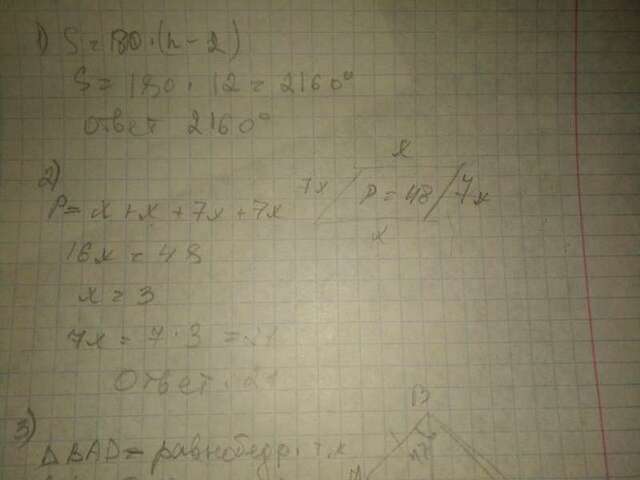 1) S = 180 · (n - 2)
S = 180 · 12 = 2160°
Ответ 2160°
2)
P = x + x + 7x + 7x
x
7x
P = 48
7x
x
16x = 48
x = 3
7x = 7 · 3 = 21
Ответ: 21
3)
B
Δ BAD = равнобедр. т.к